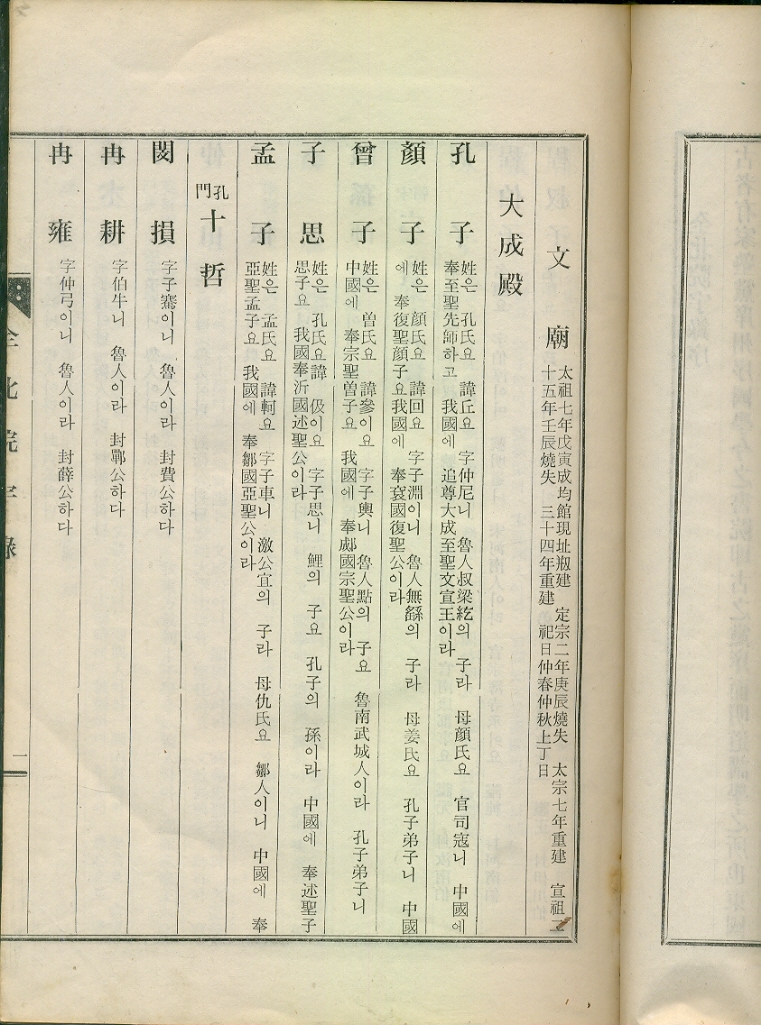 文廟 太祖七年戊寅成均館現址刱建 定宗二年庚辰燒失 太宗七年重建 宣祖二
十五年壬辰燒失 三十四年重建 祀日仲春仲秋上丁日
大成殿
孔子 姓은 孔氏요 諱丘요 字仲尼니 魯人叔梁紇의 子라 母顏氏요 官司寇니 中國에
奉至聖先師하고 我國에 追尊大成至聖文宣王이라
顏子 姓은 顏氏요 諱回요 字子淵이니 魯人無繇의 子라 母姜氏요 孔子弟子니 中國
에 奉復聖顏子요 我國에 奉兗國復聖公이라
曾子 姓은 曾氏요 諱參이요 字子輿니 魯人點의 子요 魯南武城人이라 孔子弟子니
中國에 奉宗聖曾子요 我國에 奉郕國宗聖公이라
子思 姓은 孔氏요 諱伋이요 字子思니 鯉의 子요 孔子의 孫이라 中國에 奉述聖子
思子요 我國奉沂國述聖公이라
孟子 姓은 孟氏요 諱軻요 字子車니 激公宜의 子라 母仇氏요 鄒人이니 中國에 奉
亞聖孟子요 我國에 奉鄒國亞聖公이라
孔門十哲
閔損 字子騫이니 魯人이라 封費公하다
冉耕 字伯牛니 魯人이라 封鄆公하다
冉雍 字仲弓이니 魯人이라 封薛公하다
全北院宇錄
一